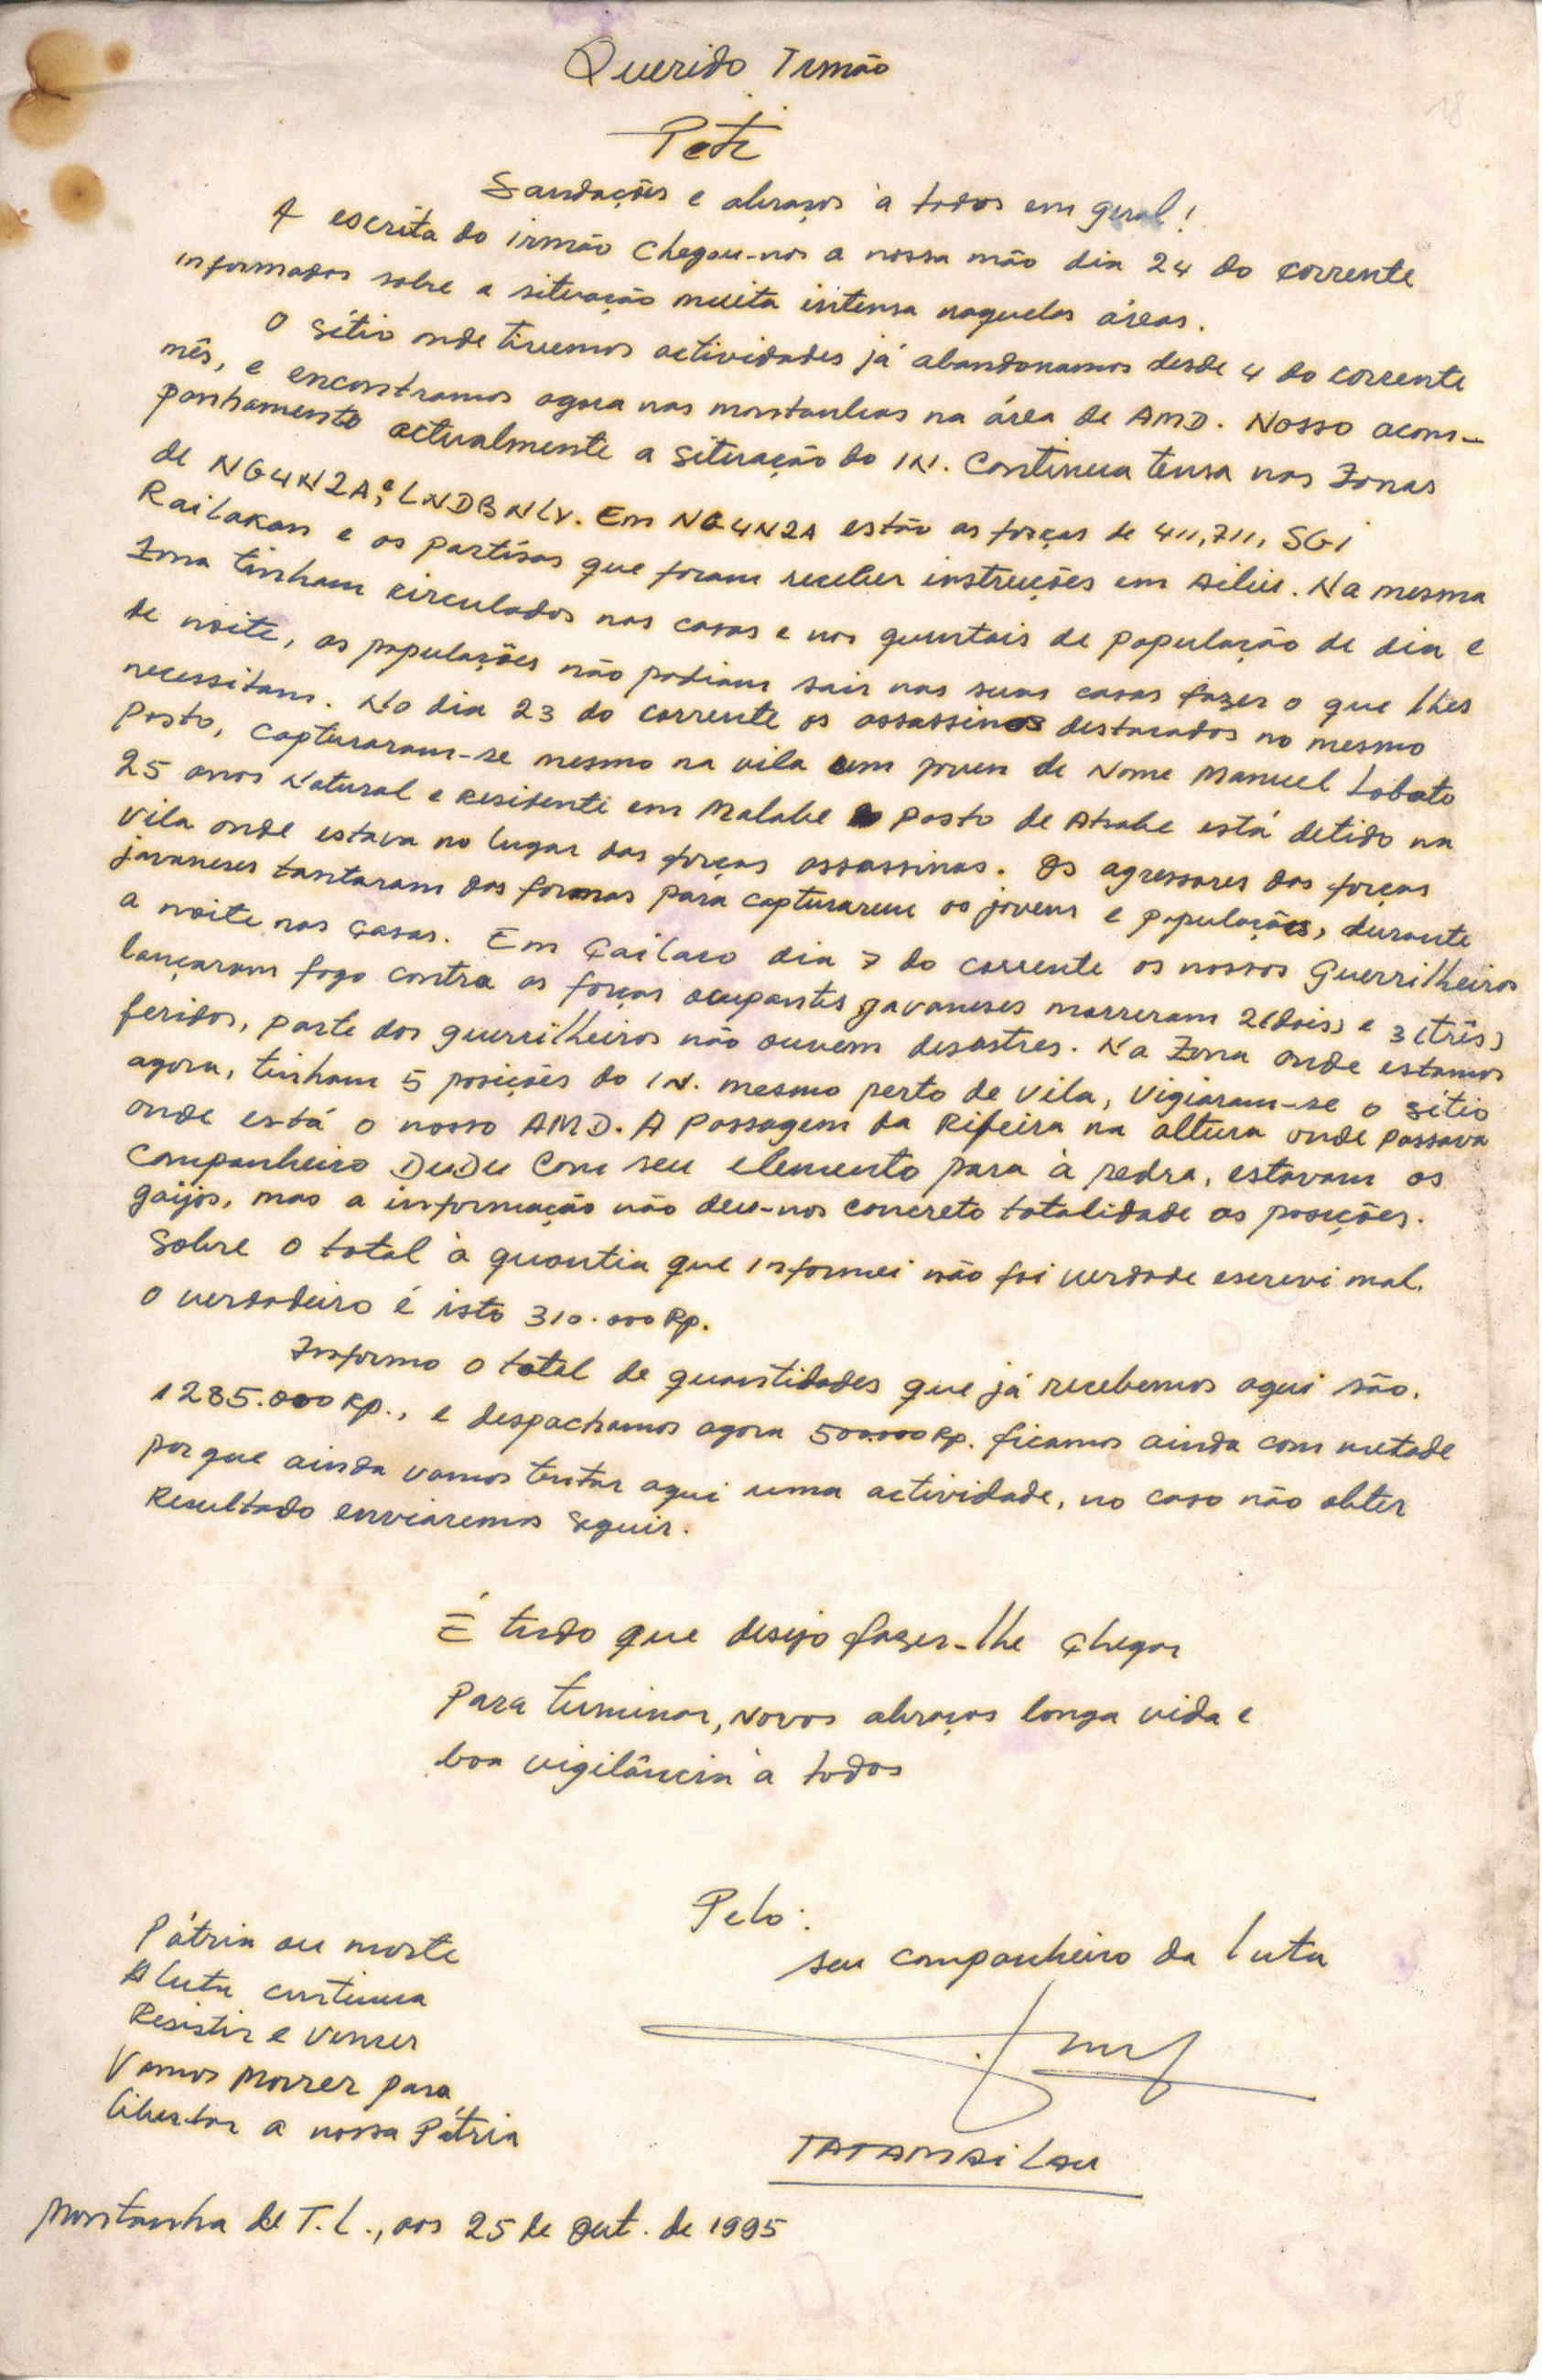 Querido Irmão
Peti
Saudações e abraços à todos em geral!
A escrita do irmão chegou-nos a nossa mão dia 24 do corrente
informados sobre a situação muita intensa naquelas áreas.
O sítio onde tivemos actividades já abandonamos desde 4 do corrente
mês, e encontramos agora nas montanhas na área de AMD. Nosso acom-
panhamento actualmente a situação do IN. Continua tensa nas zonas
de NG4N2A, e LNDBNLY. Em NG4N2A estão as forças de 411, 711, SGI
Railakan e os partisas que foram receber instruções em Aileu. Na mesma
zona tinham circulados nas casas e nos quintais de população de dia e
de noite, as populações não podiam sair nas suas casas fazer o que lhes
necessitam. No dia 23 do corrente os assassinos destacados no mesmo
Posto, capturaram-se mesmo na vila um jovem de Nome Manuel Lobato
25 anos Natural e residente em Malabe Posto de Atsabe está detido na
vila onde estava no lugar das forças assassinas. Os agressores das forças
javaneses tantaram das formas para capturarem os jovens e populações, durante
a noite nas casas. Em Çailaco dia 7 do corrente os nossos Guerrilheiros
lançaram fogo contra as forças ocupantes javaneses morreram 2(dois) e 3(três)
feridos, parte dos guerrilheiros não ouvem desastres. Na zona onde estamos
agora, tinham 5 posições do IN. mesmo perto de vila, vigiaram-se o sítio
onde está o nosso AMD. A Passagem da Ribeira na altura onde passava
Companheiro DuDu com seu elemento para à pedra, estavam os
gaijos, mas a informação não deu-nos concreto totalidade as posições.
Sobre o total à quantia que informei não foi verdade escrevi mal.
O verdadeiro é isto 310.000 Rp.
Informo o total de quantidades que já recebemos aqui são.
1285.000 Rp., e despachamos agora 500.000 Rp. ficamos ainda com metade
porque ainda vamos tentar aqui uma actividade, no caso não obter
Resultado enviaremos seguir.
É tudo que desejo fazer-lhe chegar
Para terminar, novos abraços longa vida e
boa vigilância à todos
Pelo:
seu companheiro da luta
TATAMAILAU
Pátria ou morte
A luta continua
Resistir e vencer
Vamos Morrer para
libertar a nossa Pátria
Montanha de T.L., aos 25 de Out. de 1995
18